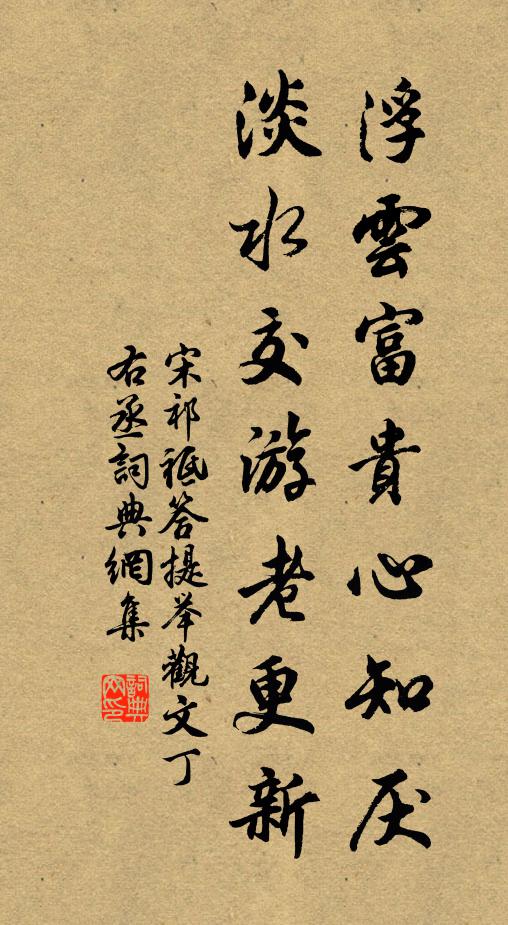 浮雲富貴心知厌
淡水交游老更新
宋祁祗答提举觀文丁
右丞詞典網集
詞典網印